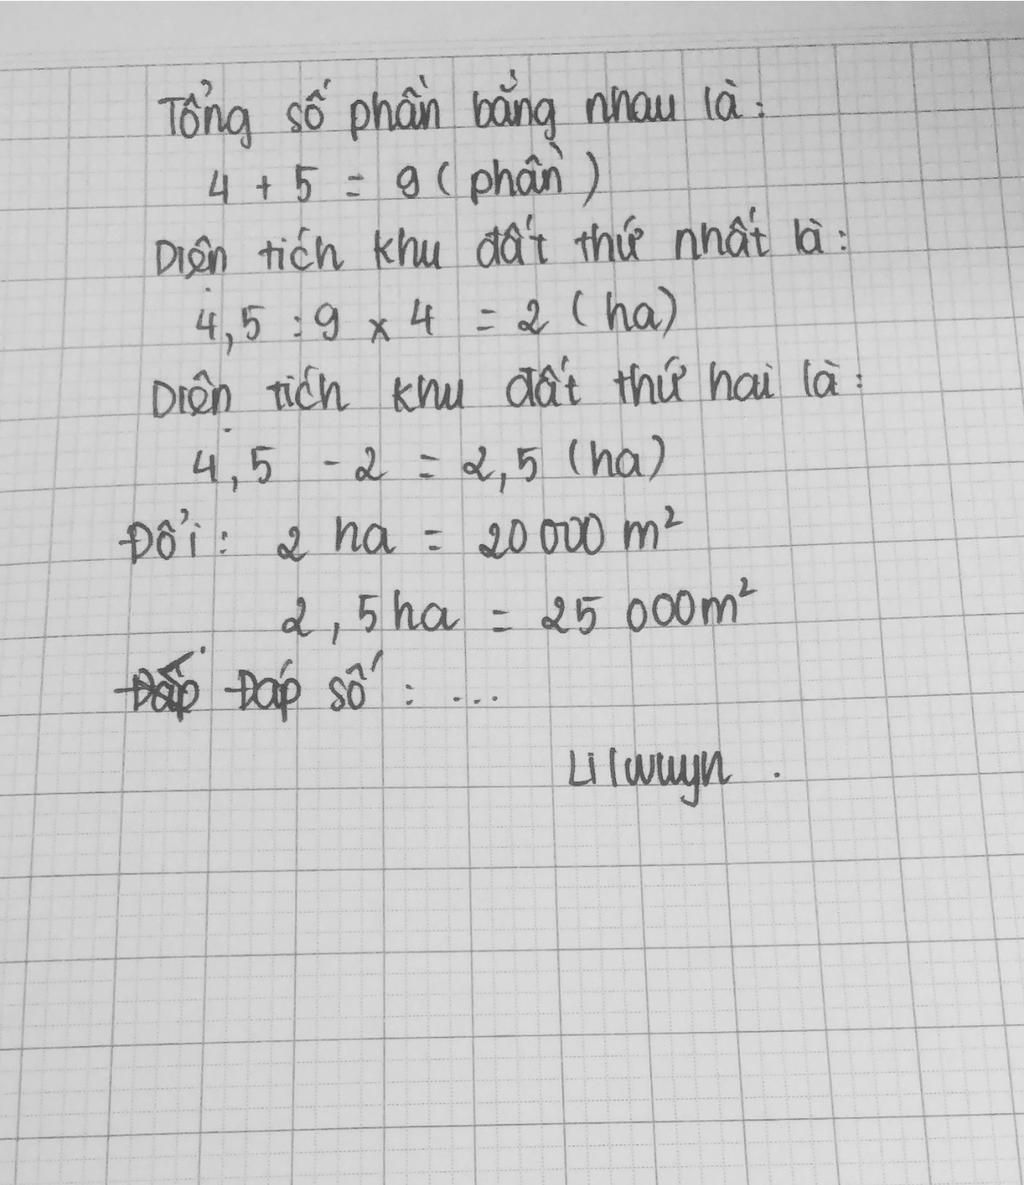 Tổng số phần bằng nhau là:
4 + 5 = 9 (phần)
Diện tích khu đất thứ nhất là:
4,5 : 9 x 4 = 2 (ha)
Diện tích khu đất thứ hai là:
4,5 - 2 = 2,5 (ha)
Đổi: 2 ha = 20 000 m²
2,5 ha = 25 000m²
Đáp số: ...
Lilwuyn.